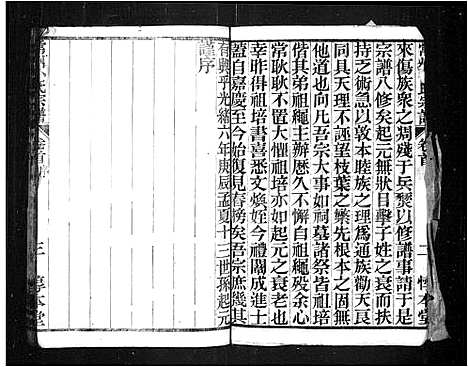 來傷族衆之凋殘于兵燹以修譜事請于是
宗譜八修矣起元無狀目擊子姓之衰而扶
持之術急以敦本睦族之理爲通族勸天良
同具天理不誣望枝葉之榮先根本之固無
偕其祖繩主辦歷久不懈自祖繩歿余心
常耿耿不置大懼祖培亦如起元之衰老也
幸昨得祖培書喜悉文煥姪今禮闈成進士
蓋自嘉慶至今始復見春榜矣吾宗庶幾其
有興乎光緒六年庚辰孟夏十三世孫起元
謹序
氏宗譜
卷首
二
惇本堂
氏宗譜
卷首
三
惇本堂